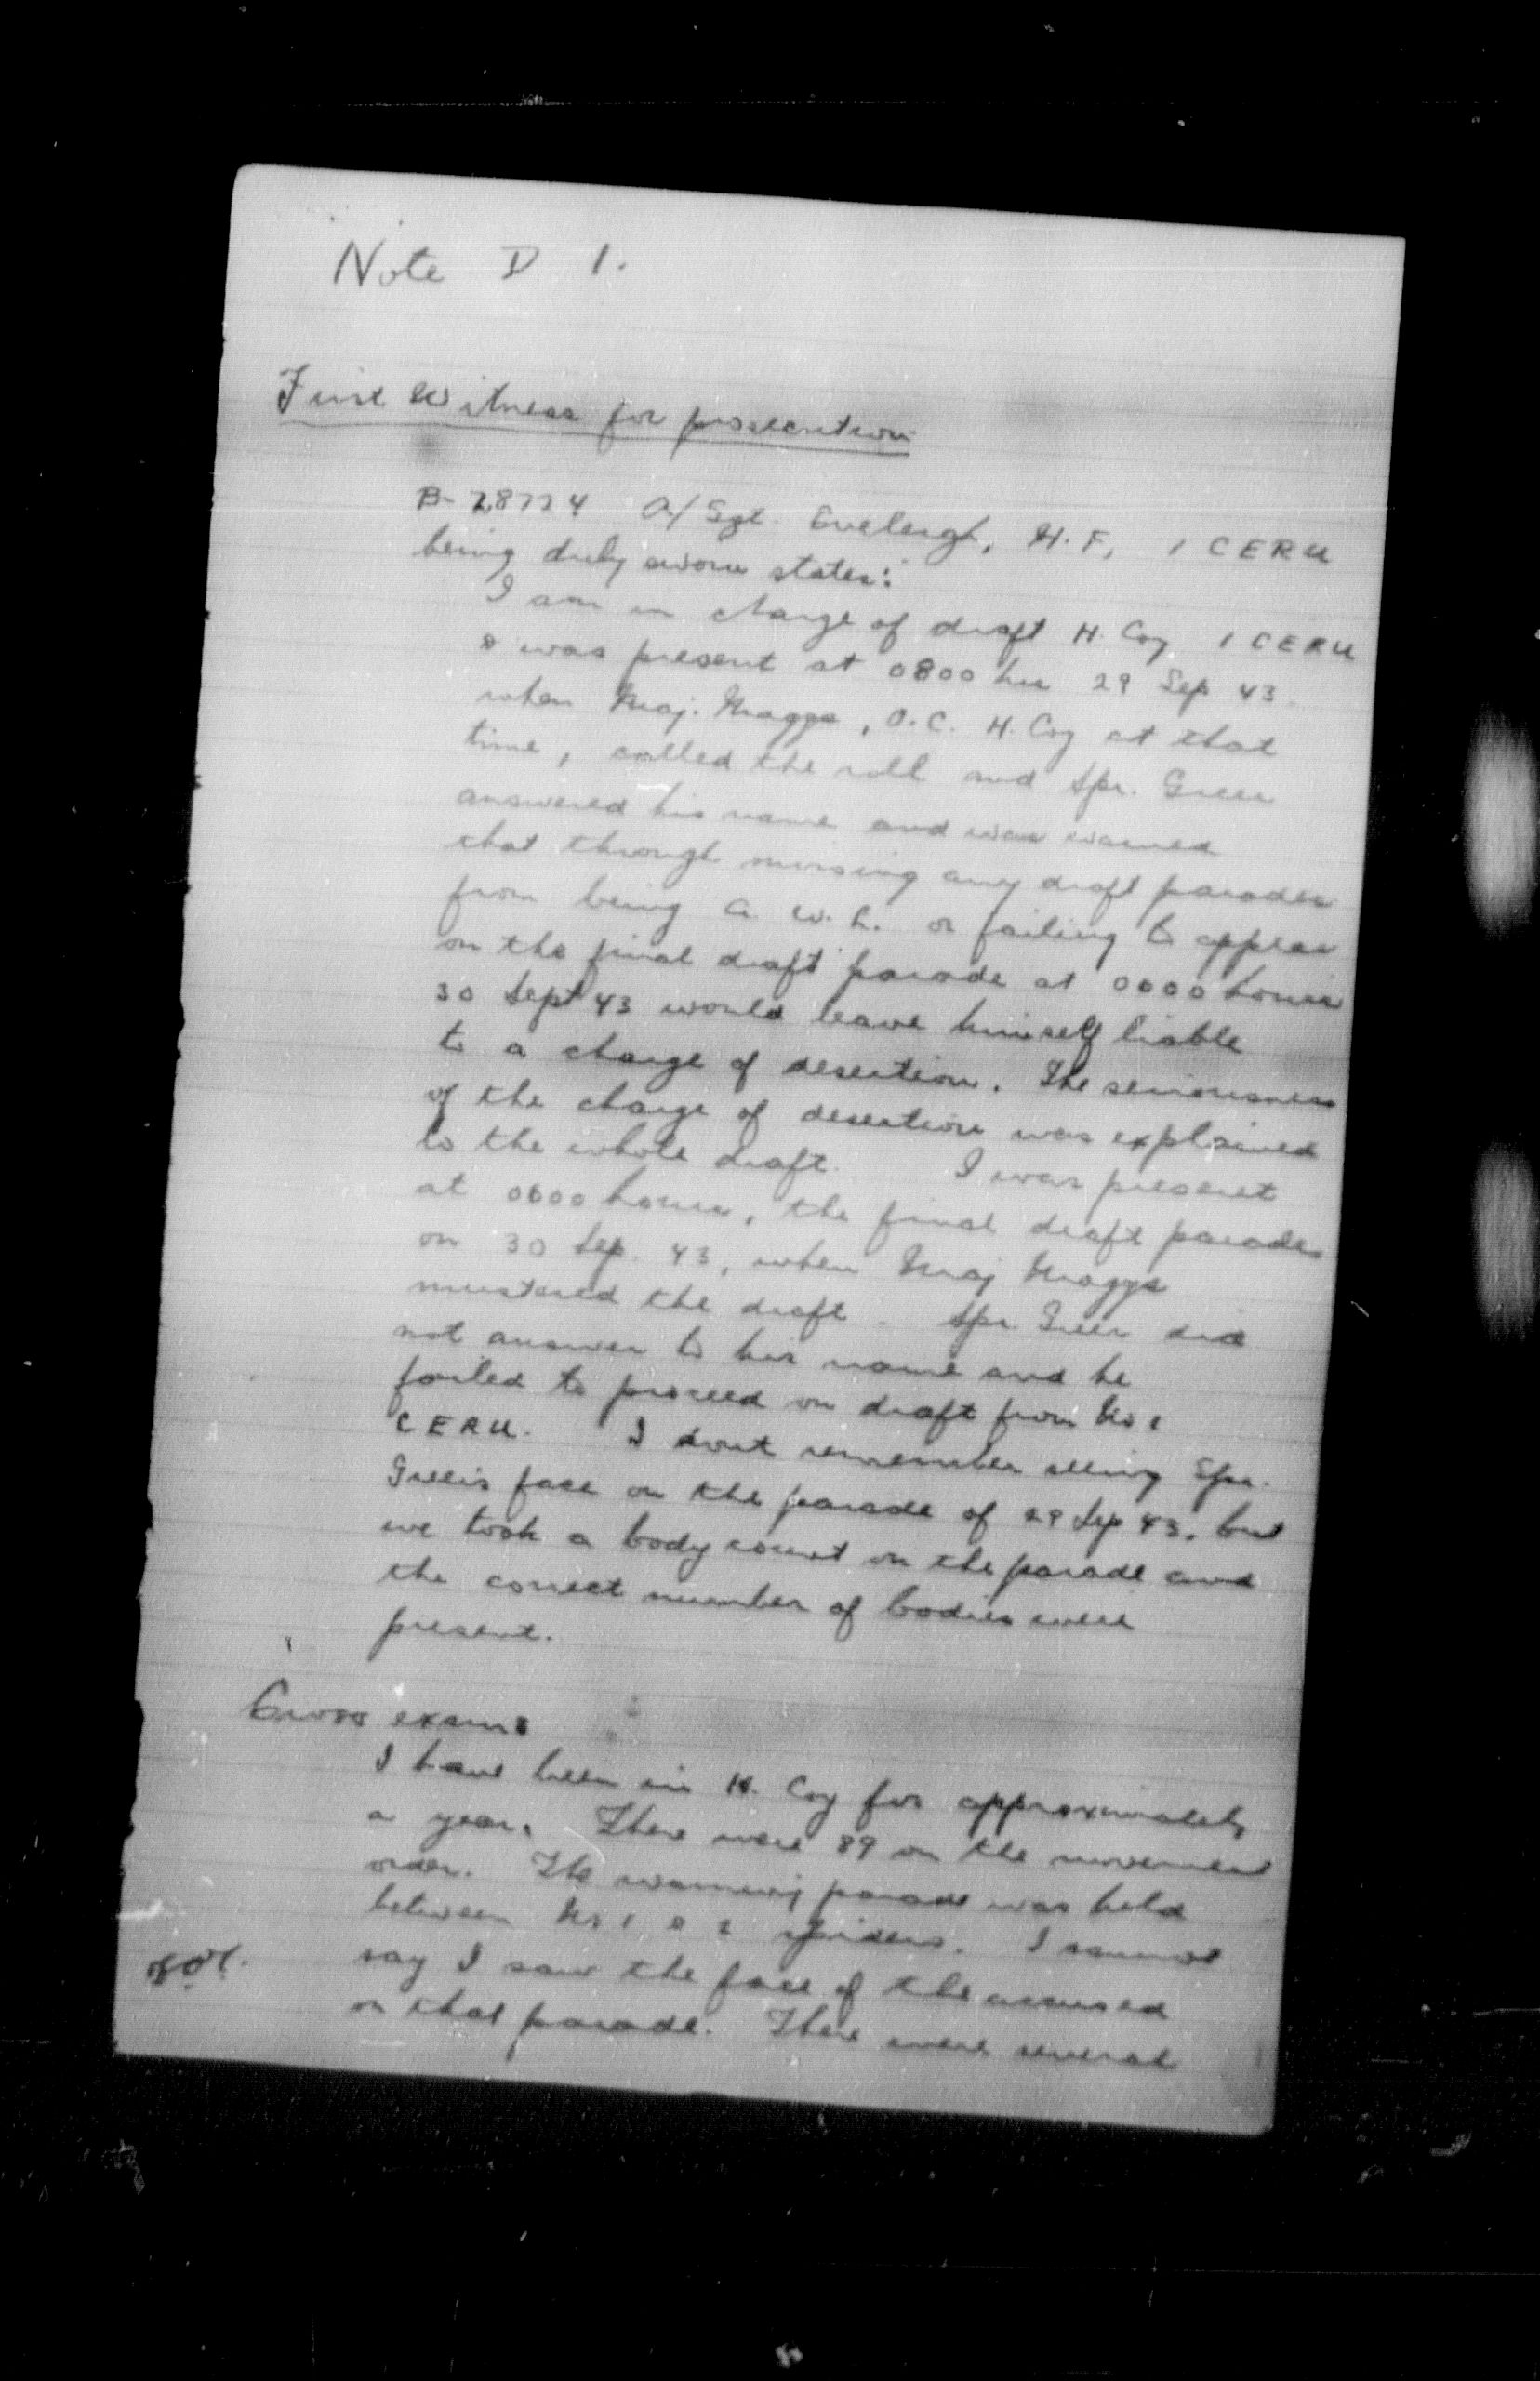 Note D 1.
First Witness for prosecution
B-28724 A/Sgt. Eveleigh, H.F, 1 CERU
being duly sworn states:
I am in charge of draft H. Coy 1 CERU
& was present at 0800 hrs 29 Sep 43.
when Maj. Maggs, O.C. H. Coy at that
time, called the roll and Spr. Greer
answered his name and was warned
that through missing any draft parades
from being A.W.L. or failing to appear
on the final draft parade at 0600 hours
30 Sept 43 would leave himself liable
to a charge of desertion. The seriousness
of the charge of desertion was explained
to the whole draft. I was present
at 0600 hours, the final draft parade
on 30 Sep. 43, when Maj Maggs
mustered the draft. Spr Greer did
not answer to his name and he
failed to proceed on draft from No 1
CERU. I dont remember seeing Spr.
Greer's face on the parade of 29 Sep 43. but
we took a body count on the parade and
the correct number of bodies were
present.
Cross exam:
I have been in H. Coy for approximately
a year. There were 89 on the movement
order. The warning parade was held
between No 1 & 2 spiders. I cannot
say I saw the face of the accused
on that parade. There were several